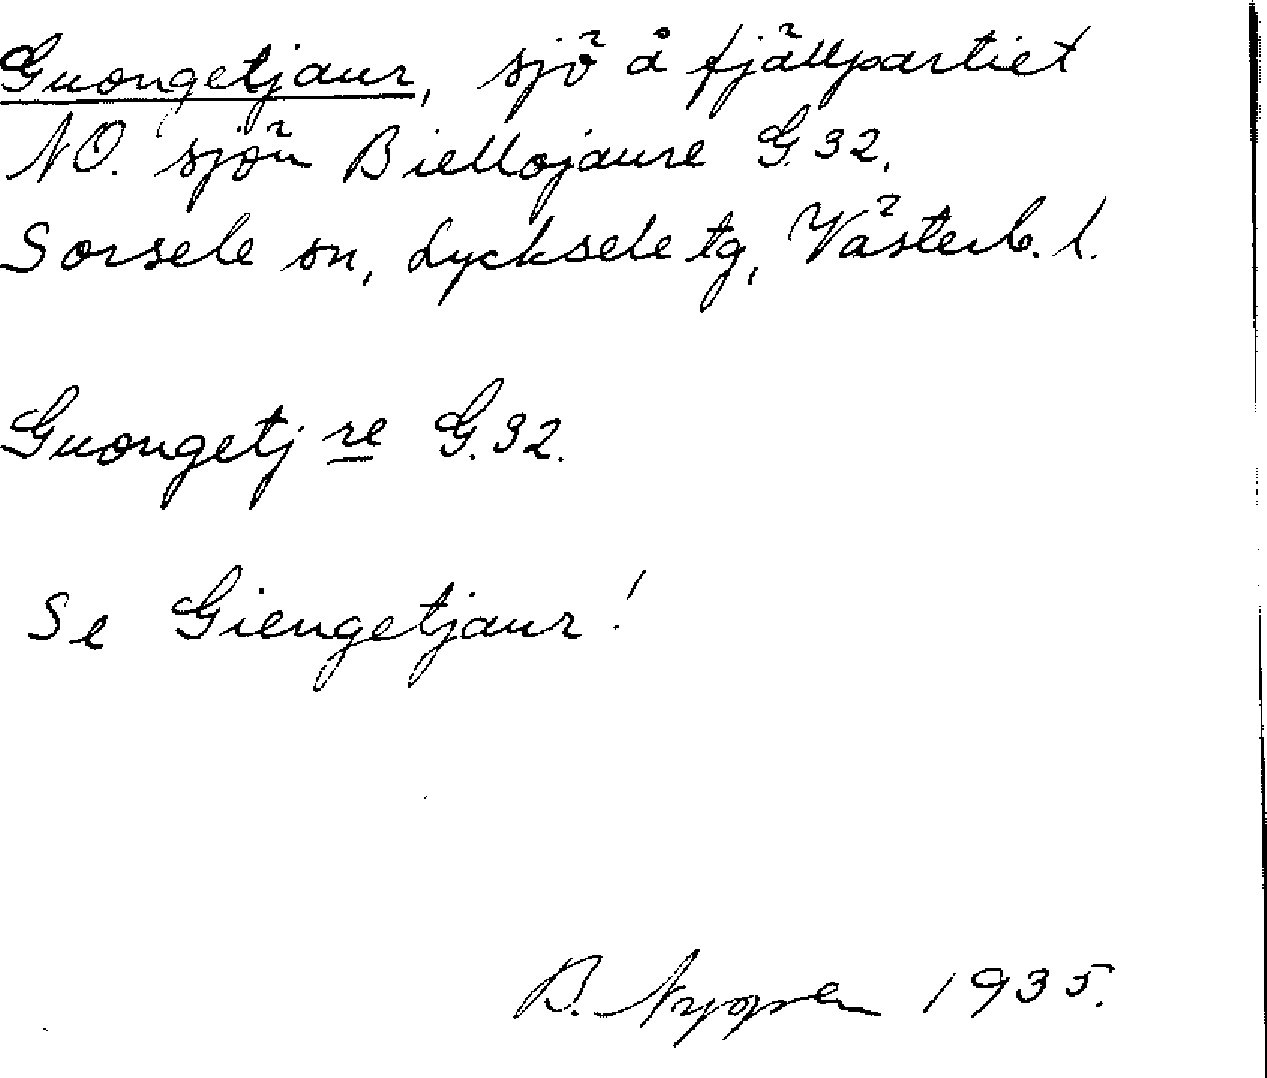 Guongetjaur, sjö å fjällpartiet
NO. sjön Biellojaure G.32.
Sorsele sn, Lycksele tg, Västerb. l.
Guongetj re G.32.
Se Giengetjaur!
B. 1935.